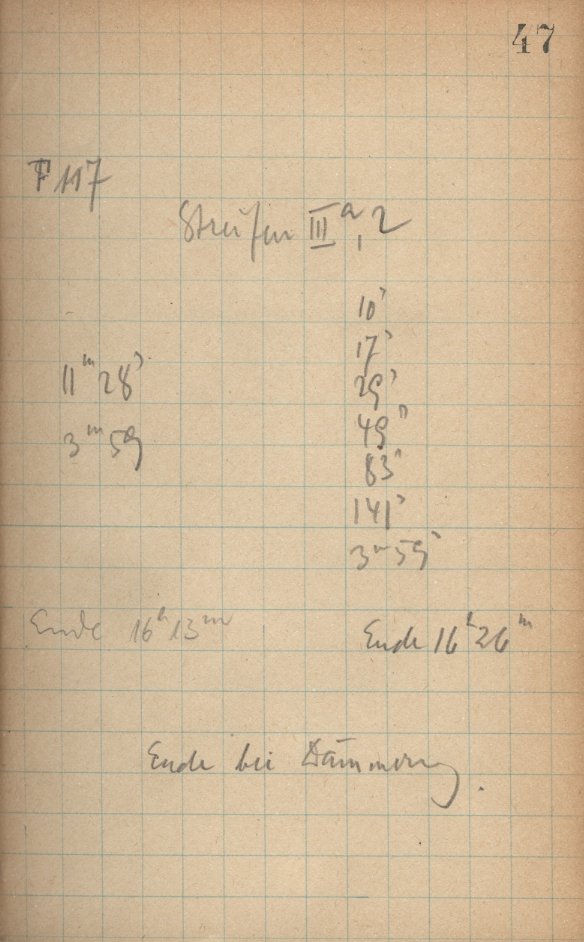 47
F 117
Streifen III a, 2
10s
17s
11m 28s 29s
3m 59 49s
83s
141s
3m 59s
Ende 16h 13m Ende 16h 26m
Ende bei Dämmerung.